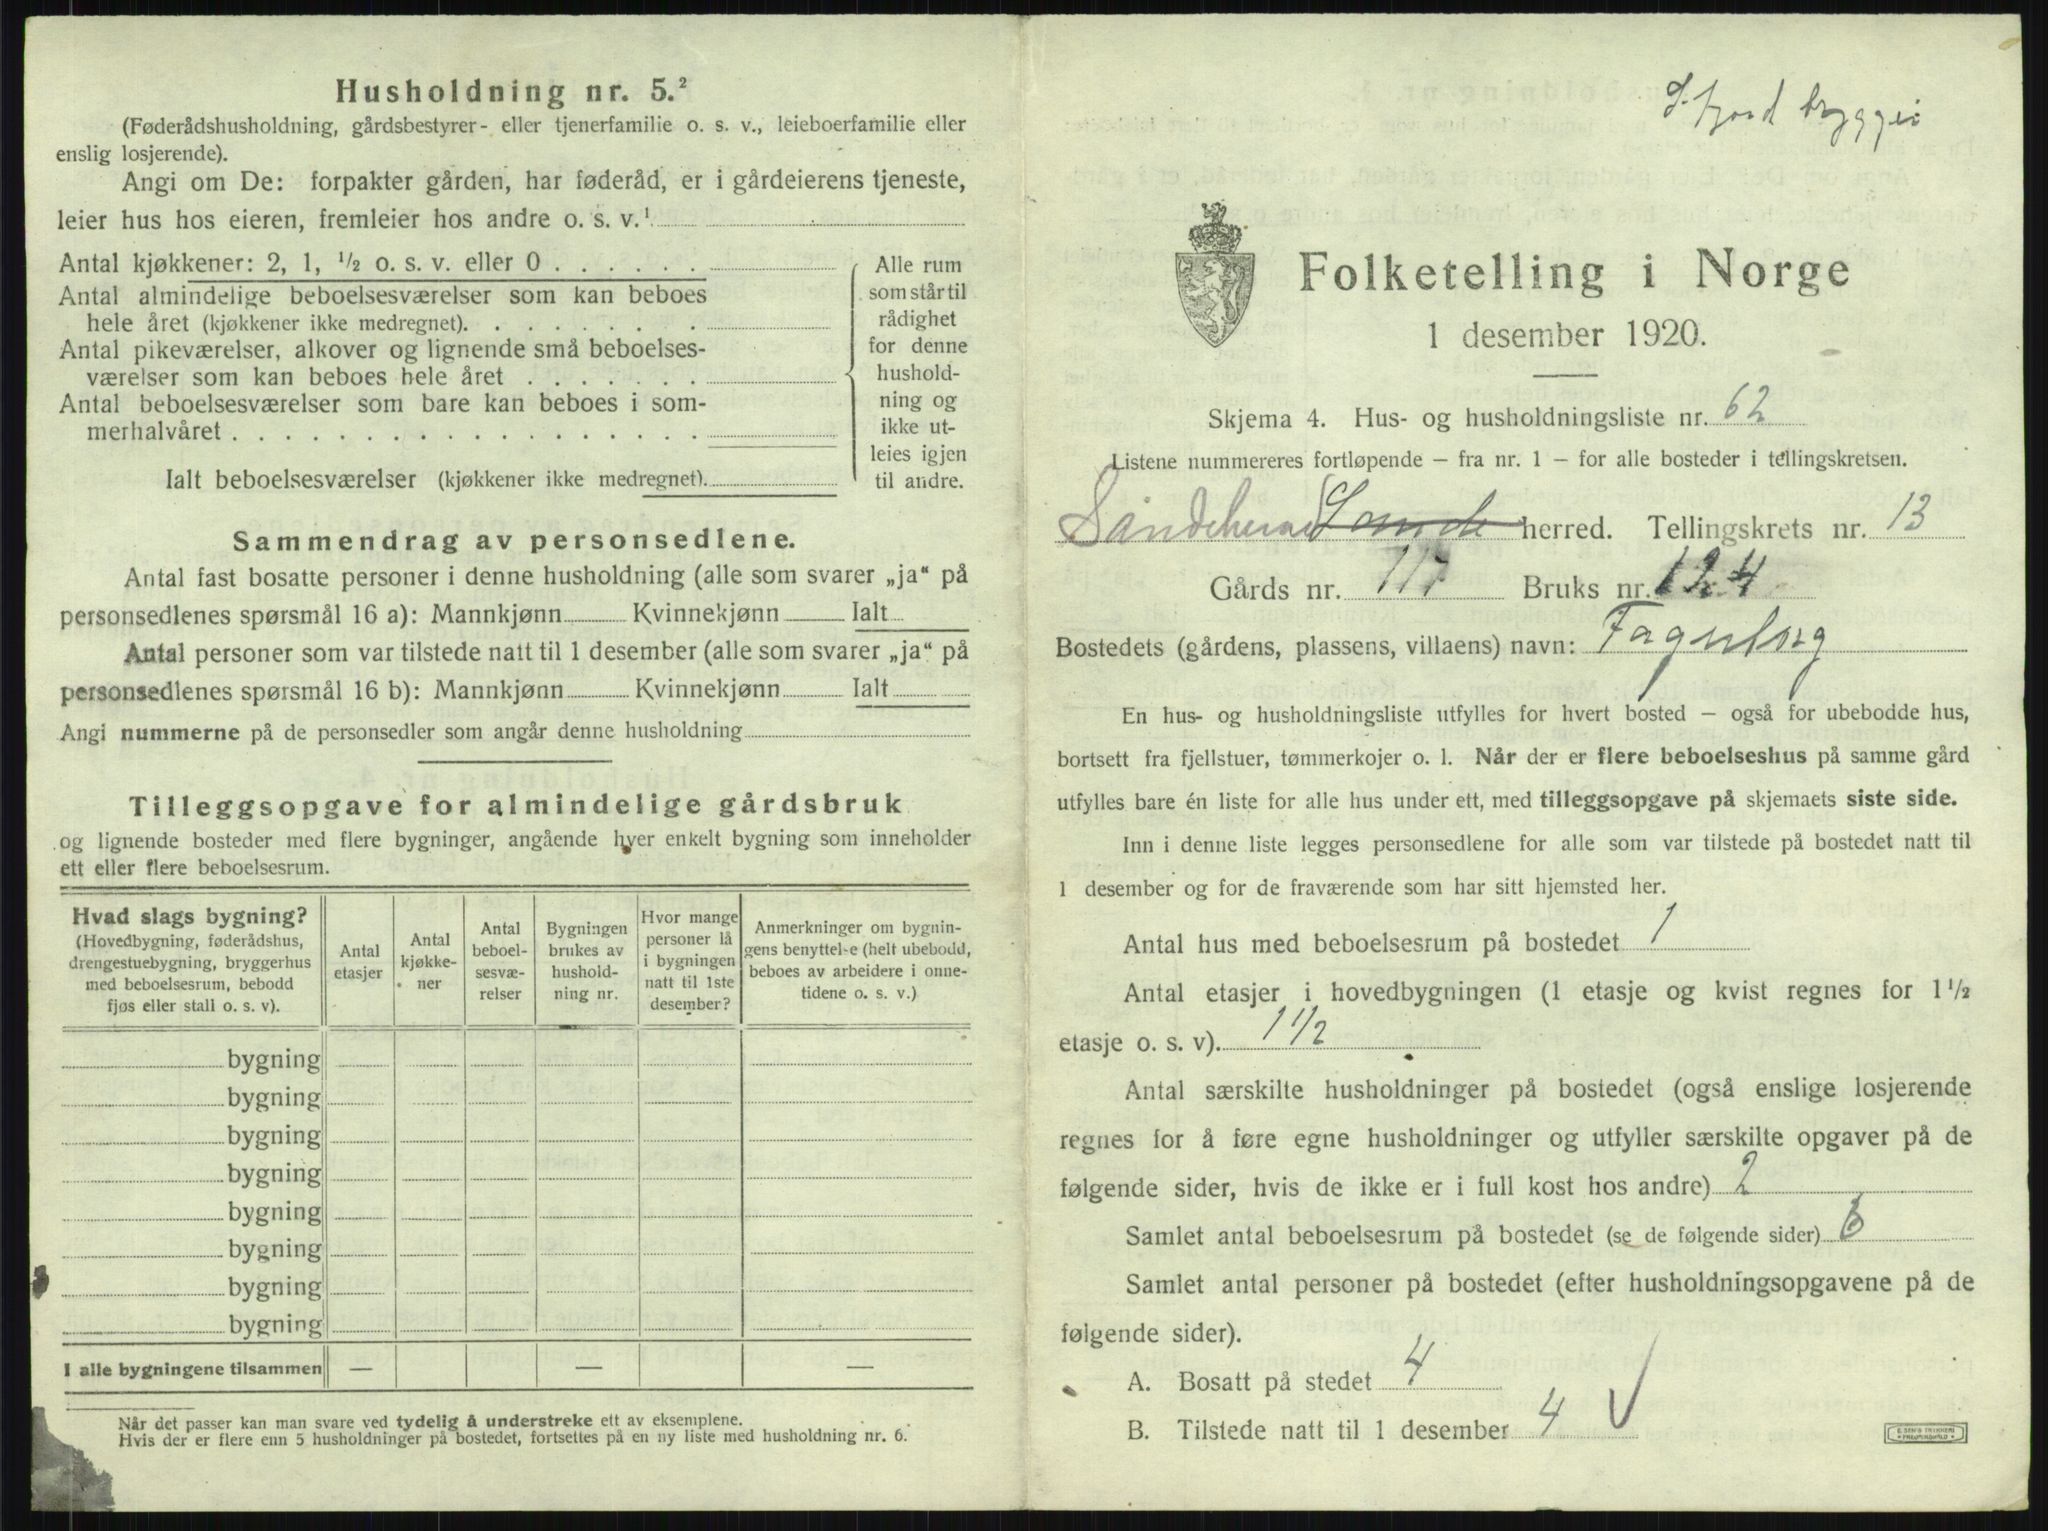 Husholdning nr. 5.²
(Føderådshusholdning, gårdsbestyrer- eller tjenerfamilie o. s. v., leieboerfamilie eller
enslig losjerende).
Angi om De: forpakter gården, har føderåd, er i gårdeierens tjeneste,
leier hus hos eieren, fremleier hos andre o. s. v.¹
Antal kjøkkener: 2, 1, ½ o. s. v. eller 0 . . . . . .
Antal almindelige beboelsesværelser som kan beboes
hele året (kjøkkener ikke medregnet). . . . . . . . .
Antal pikeværelser, alkover og lignende små beboelses-
værelser som kan beboes hele året . . . . . . .
Antal beboelsesværelser som bare kan beboes i som-
merhalvåret . . . . . . . . . . . . . . . . . .
Ialt beboelsesværelser (kjøkkener ikke medregnet).
Alle rum
som står til
rådighet
for denne
hushold-
ning og
ikke ut-
leies igjen
til andre.
Sammendrag av personsedlene.
Antal fast bosatte personer i denne husholdning (alle som svarer „ja“ på
personsedlenes spørsmål 16 a): Mannkjønn Kvinnekjønn Ialt
Antal personer som var tilstede natt til 1 desember (alle som svarer „ja“ på
personsedlenes spørsmål 16 b): Mannkjønn Kvinnekjønn Ialt
Angi nummerne på de personsedler som angår denne husholdning
Tilleggsopgave for almindelige gårdsbruk
og lignende bosteder med flere bygninger, angående hver enkelt bygning som inneholder
ett eller flere beboelsesrum.
Hvad slags bygning?
(Hovedbygning, føderådshus,
drengestuebygning, bryggerhus
med beboelsesrum, bebodd
fjøs eller stall o. s. v).
Antal
etasjer
Antal
kjøkke-
ner
Antal
beboel-
sesvæ-
relser
Bygningen
brukes av
hushold-
ning nr.
Hvor mange
personer lå
i bygningen
natt til 1ste
desember?
Anmerkninger om bygnin-
gens benyttelse (helt ubebodd,
beboes av arbeidere i onne-
tidene o. s. v.)
bygning
bygning
bygning
bygning
bygning
bygning
bygning
bygning
I alle bygningene tilsammen — — —
Når det passer kan man svare ved tydelig å understreke ett av eksemplene.
Hvis der er flere enn 5 husholdninger på bostedet, fortsettes på en ny liste med husholdning nr. 6.
Folketelling i Norge
1 desember 1920.
Skjema 4. Hus- og husholdningsliste nr. 62
Listene nummereres fortløpende – fra nr. 1 – for alle bosteder i tellingskretsen.
Sandeherred herred. Tellingskrets nr. 13
Gårds nr. 117 Bruks nr. 124
Bostedets (gårdens, plassens, villaens) navn: Fagerborg
En hus- og husholdningsliste utfylles for hvert bosted – også for ubebodde hus,
bortsett fra fjellstuer, tømmerkojer o. l. Når der er flere beboelseshus på samme gård
utfylles bare én liste for alle hus under ett, med tilleggsopgave på skjemaets siste side.
Inn i denne liste legges personsedlene for alle som var tilstede på bostedet natt til
1 desember og for de fraværende som har sitt hjemsted her.
Antal hus med beboelsesrum på bostedet 1
Antal etasjer i hovedbygningen (1 etasje og kvist regnes for 1½
etasje o. s. v). 1½
Antal særskilte husholdninger på bostedet (også enslige losjerende
regnes for å føre egne husholdninger og utfyller særskilte opgaver på de
følgende sider, hvis de ikke er i full kost hos andre) 2
Samlet antal beboelsesrum på bostedet (se de følgende sider) 6
Samlet antal personer på bostedet (efter husholdningsopgavene på de
følgende sider).
A. Bosatt på stedet 4
B. Tilstede natt til 1 desember 4